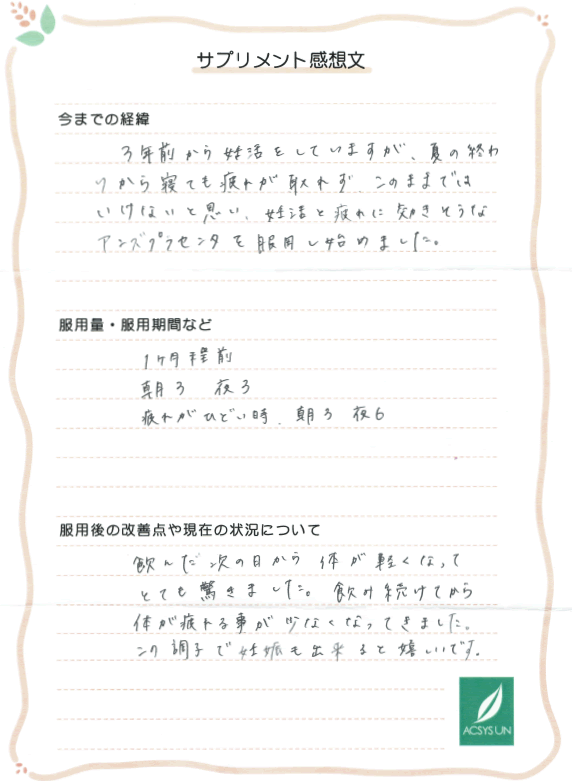 サプリメント感想文
今までの経緯
3年前から妊活をしていますが、夏の終わ
りから寝ても疲れが取れず、このままでは
いけないと思い、妊活と疲れに効きそうな
アンズプラセンタを服用し始めました。
服用量・服用期間など
1ヶ月程前
朝3 夜3
疲れがひどい時、朝3 夜6
服用後の改善点や現在の状況について
飲んだ次の日から体が軽くなって
とても驚きました。飲み続けてから
体が疲れる事が少なくなってきました。
この調子で妊娠も出来ると嬉しいです。
ACSYSUN